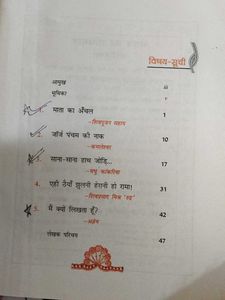 विषय-सूची
आमुख iii
भूमिका v
1. माता का अँचल 1
–शिवपूजन सहाय
2. जॉर्ज पंचम की नाक 10
–कमलेश्वर
3. साना-साना हाथ जोड़ि... 17
–मधु कांकरिया
4. एही ठैयाँ झुलनी हेरानी हो रामा! 31
–शिवप्रसाद मिश्र 'रुद्र'
5. मैं क्यों लिखता हूँ? 42
–अज्ञेय
लेखक परिचय 47